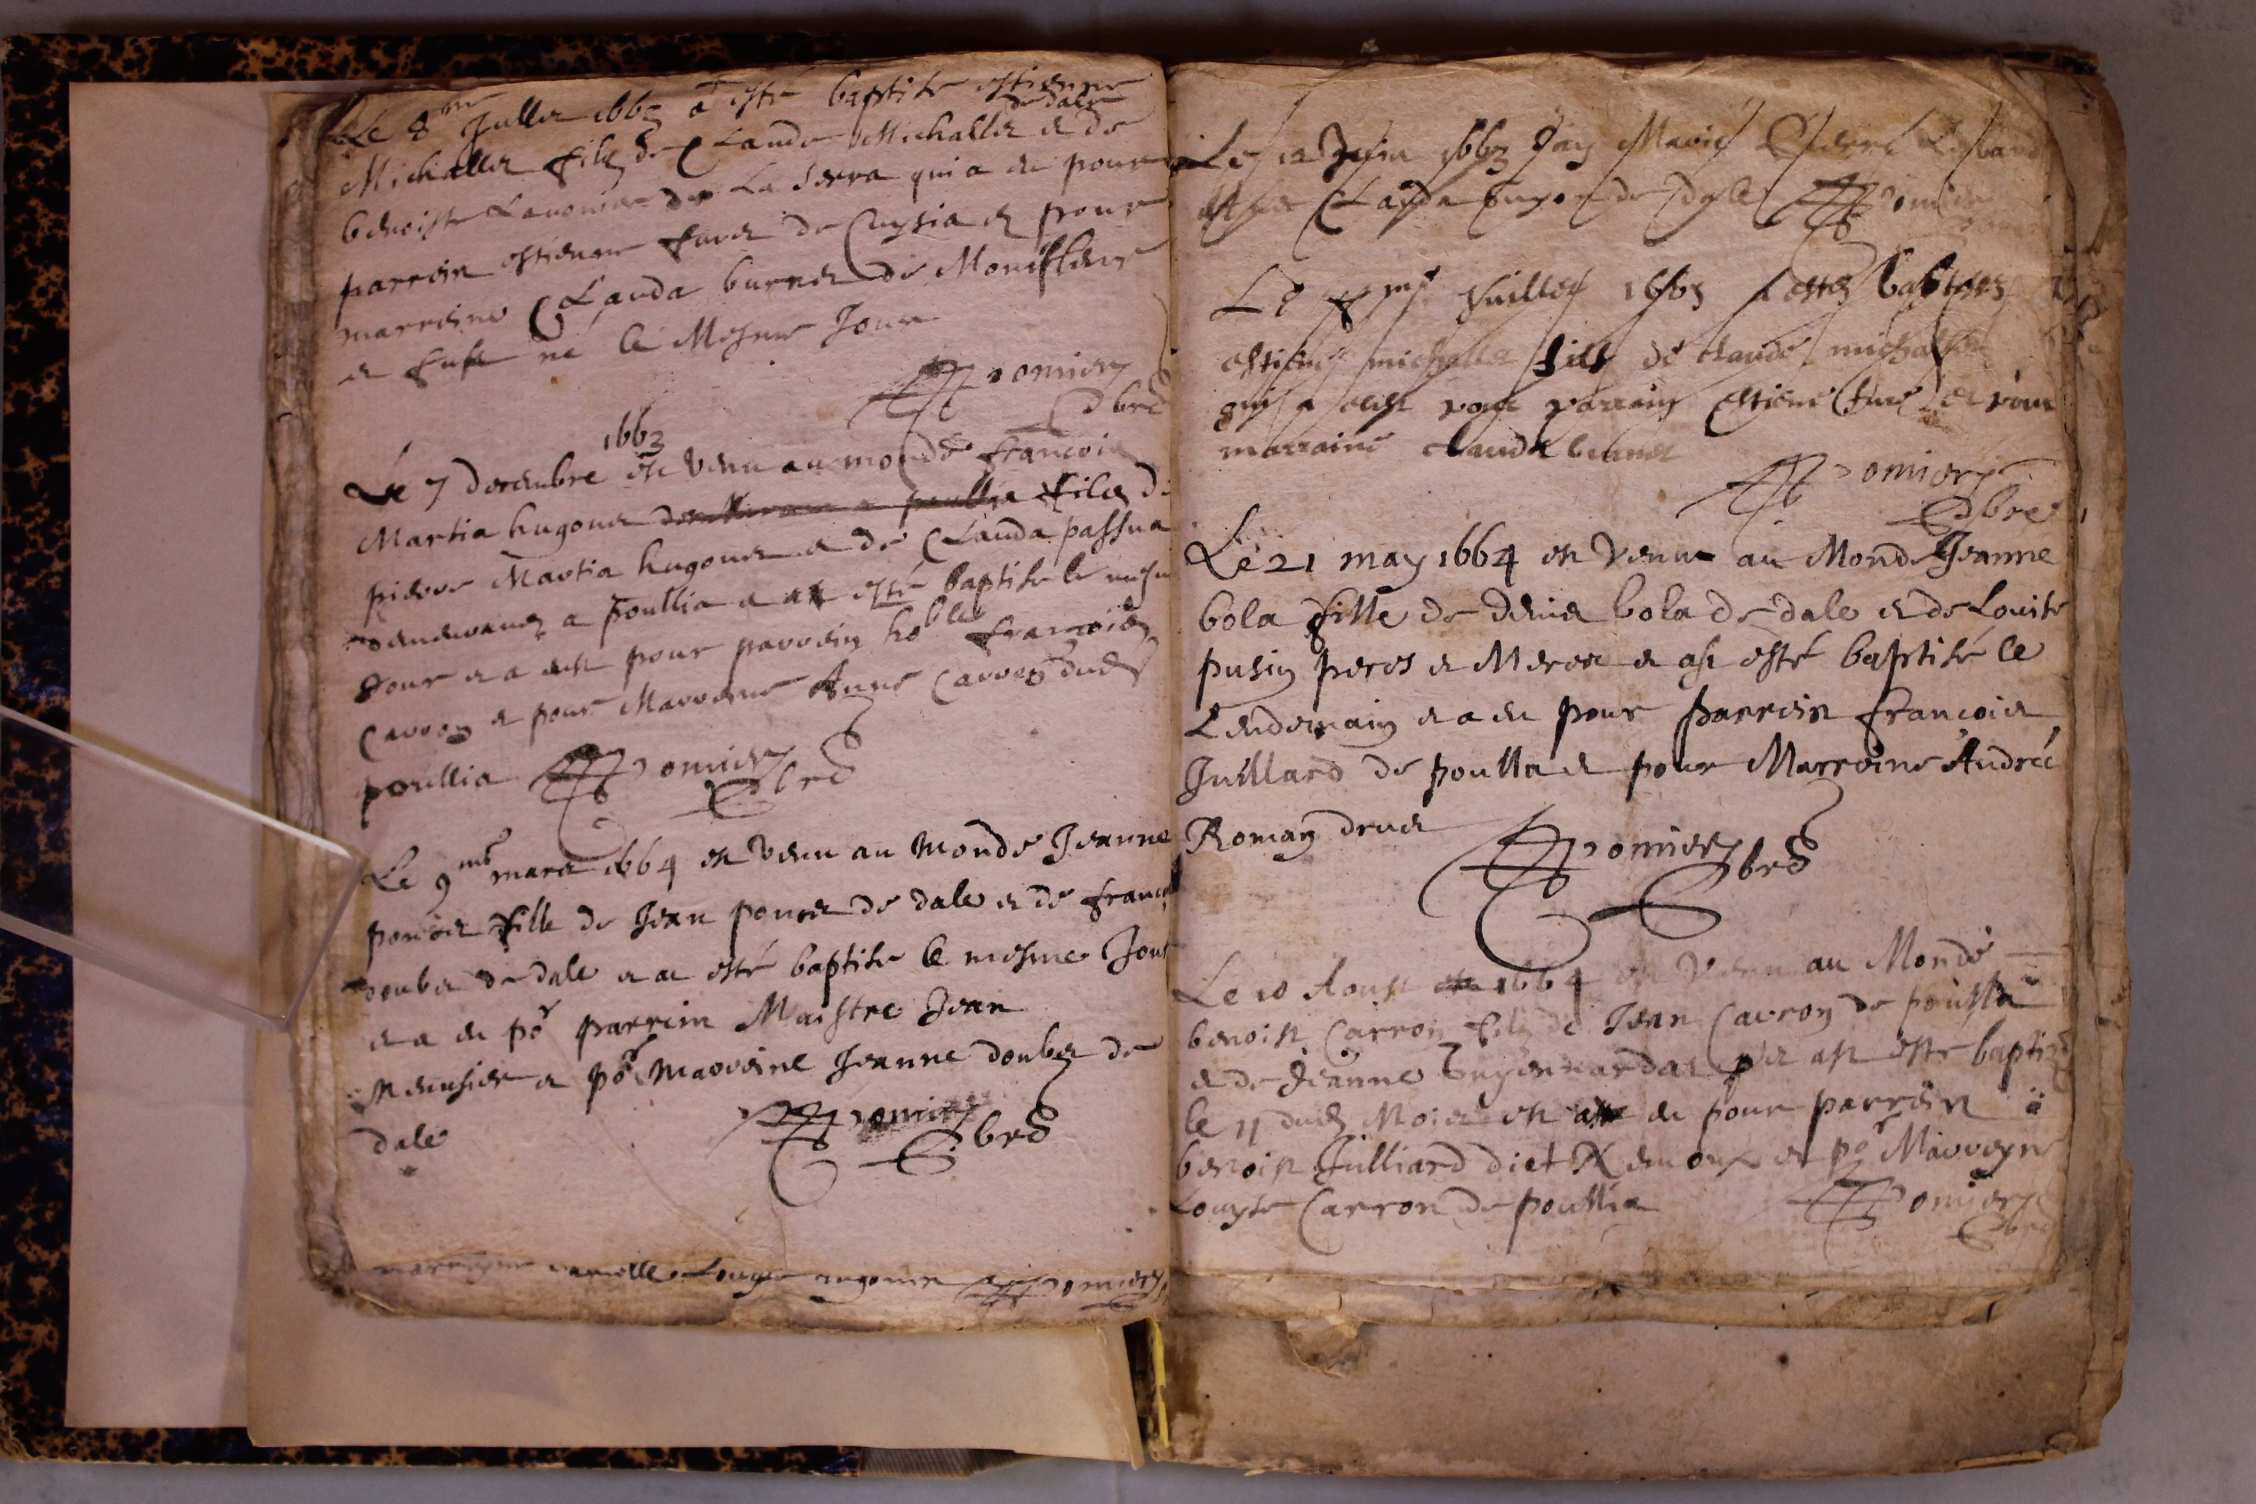 Le 8me Jullet 1663 a esté baptise estienne
de dale
Michallet filz de Claude Michallet et de
benoiste Lavomie de La Serra qui a eu pour
parrein estienne favre de Cuysia et pour
marreine Clauda burnet de Monsfleur
et fust né le Mesme Jour
Pomier
pbre
1663
Le 7 decembre est venu au monde françois
Martia hugonet filz de
pierre Martia hugonet et de Clauda passua
demeurans a poullia et at esté baptise le mesme
Jour et a eust pour parrein hoble françois
Carron et pour Marreine Anne Carron dud
poullia Pomier pbre
Le 9me mars 1664 est venu au monde Jeanne
poncet fille de Jean poncet de dale et de franc
doubet de dale et at esté baptise le mesme Jour
et a eu por parrein Maistre Jean
Meusier et por Marreine Jeanne doubet de
dale
Pomier pbre
marreyne Louyse hugonet Pomier
Le 12 Juin 1663 Jay Marie Pierre
et Clauda guyon de dale Pomier
Le me Juillet 1663 a esté baptisé
estiene michallet fils de claude michallet
qui a eust pour parrain estiene favre et pour
marraine claude burnet
Pomier
pbre
Le 21 may 1664 est venu au Monde Jeanne
bola fille de denis bola de dale et de Louise
pusin peres et Meres et ast esté baptisé le
Lendemain et a eu pour parrein francois
Juillard de poullia et pour Marreine Andréé
Roman druet
Pomier pbre
Le 10 Aoust 1664 est venu au Monde
benoist Carron filz de Jean Carron de poullia
et de Jeanne et ast esté baptize
le 11 dud Mois et eu pour parrein
benoist Julliard diet et por Marreyne
Louyse Carron de poullia Pomier
pbre